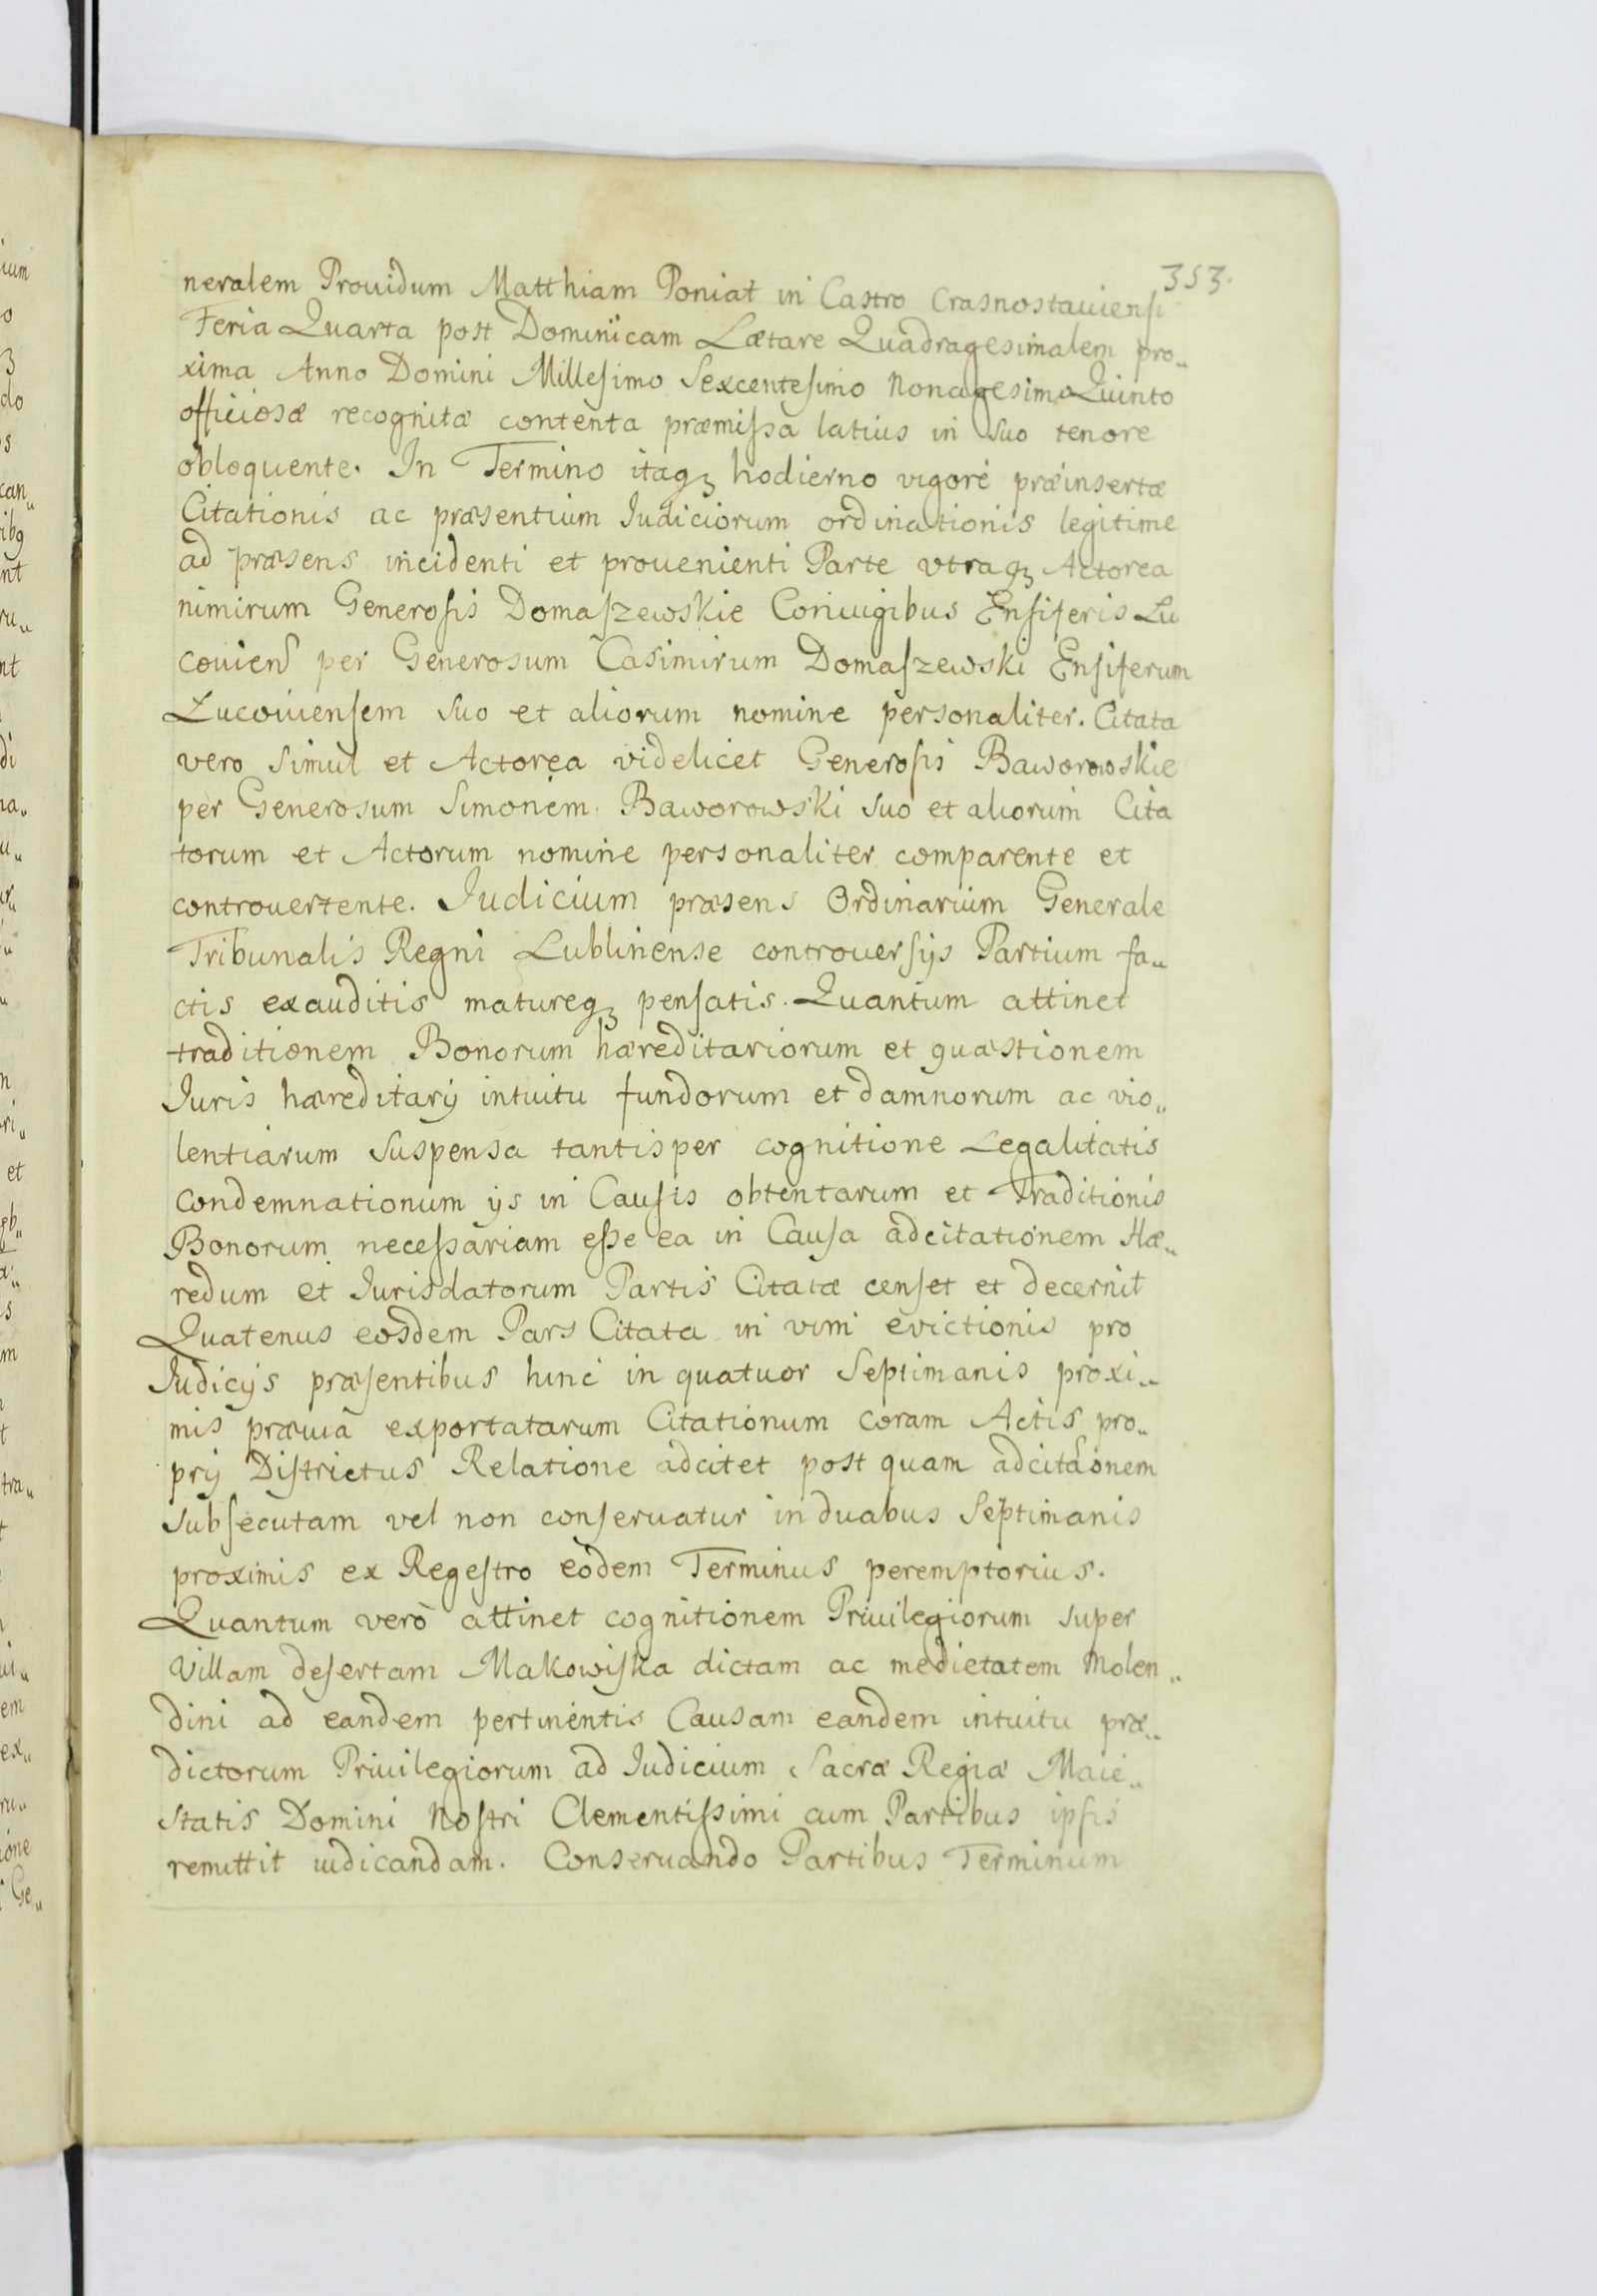 353.
neralem Prouidum Matthiam Poniat in Castro Crasnostauiensi
Feria Quarta post Dominicam Lætare Quadragesimalem pro„
xima Anno Domini Millesimo Sexcentesimo Nonagesimo Quinto
officiosæ recognitæ contenta præmissa latius in suo tenore
obloquente. In Termino itaqꝫ hodierno vigore præinsertæ
Citationis ac præsentium Iudiciorum ordinationis legitime
ad præsens incidenti et prouenienti Parte vtraqꝫ Actorea
nimirum Generosis Domaszewskie Coniugibus Ensiferis Lu
couiens per Generosum Casimirum Domaszewski Ensiferum
Lucouiensem suo et aliorum nomine personaliter. Citata
vero simul et Actorea videlicet Generosis Baworowskie
per Generosum Simonem Baworowski suo et aliorum Cita
torum et Actorum nomine personaliter comparente et
controuertente. Iudicium præsens Ordinarium Generale
Tribunalis Regni Lublinense controuersijs Partium fa„
ctis exauditis matureqꝫ pensatis. Quantum attinet
traditionem Bonorum hæreditariorum et quæstionem
Iuris hæreditarij intuitu fundorum et damnorum ac vio„
lentiarum suspensa tantisper cognitione Legalitatis
condemnationum ijs in Causis obtentarum et Traditionis
Bonorum necessariam esse ea in Causa adcitationem Hæ„
redum et Iurisdatorum Partis Citatæ censet et decernit
Quatenus eosdem Pars Citata in vim evictionis pro
Iudicijs præsentibus hinc in quatuor Septimanis proxi„
mis præuia exportatarum Citationum coram Actis pro„
prij Districtus Relatione adcitet post quam adcitãonem
subsecutam vel non conseruatur in duabus Septimanis
proximis ex Regestro eodem Terminus peremptorius.
Quantum verò attinet cognitionem Priuilegiorum super
Villam desertam Makowiska dictam ac medietatem Molen„
dini ad eandem pertinentis Causam eandem intuitu præ„
dictorum Priuilegiorum ad Iudicium Sacræ Regiæ Maie„
statis Domini Nostri Clementissimi cum Partibus ipsis
remittit iudicandam. Conseruando Partibus Terminum